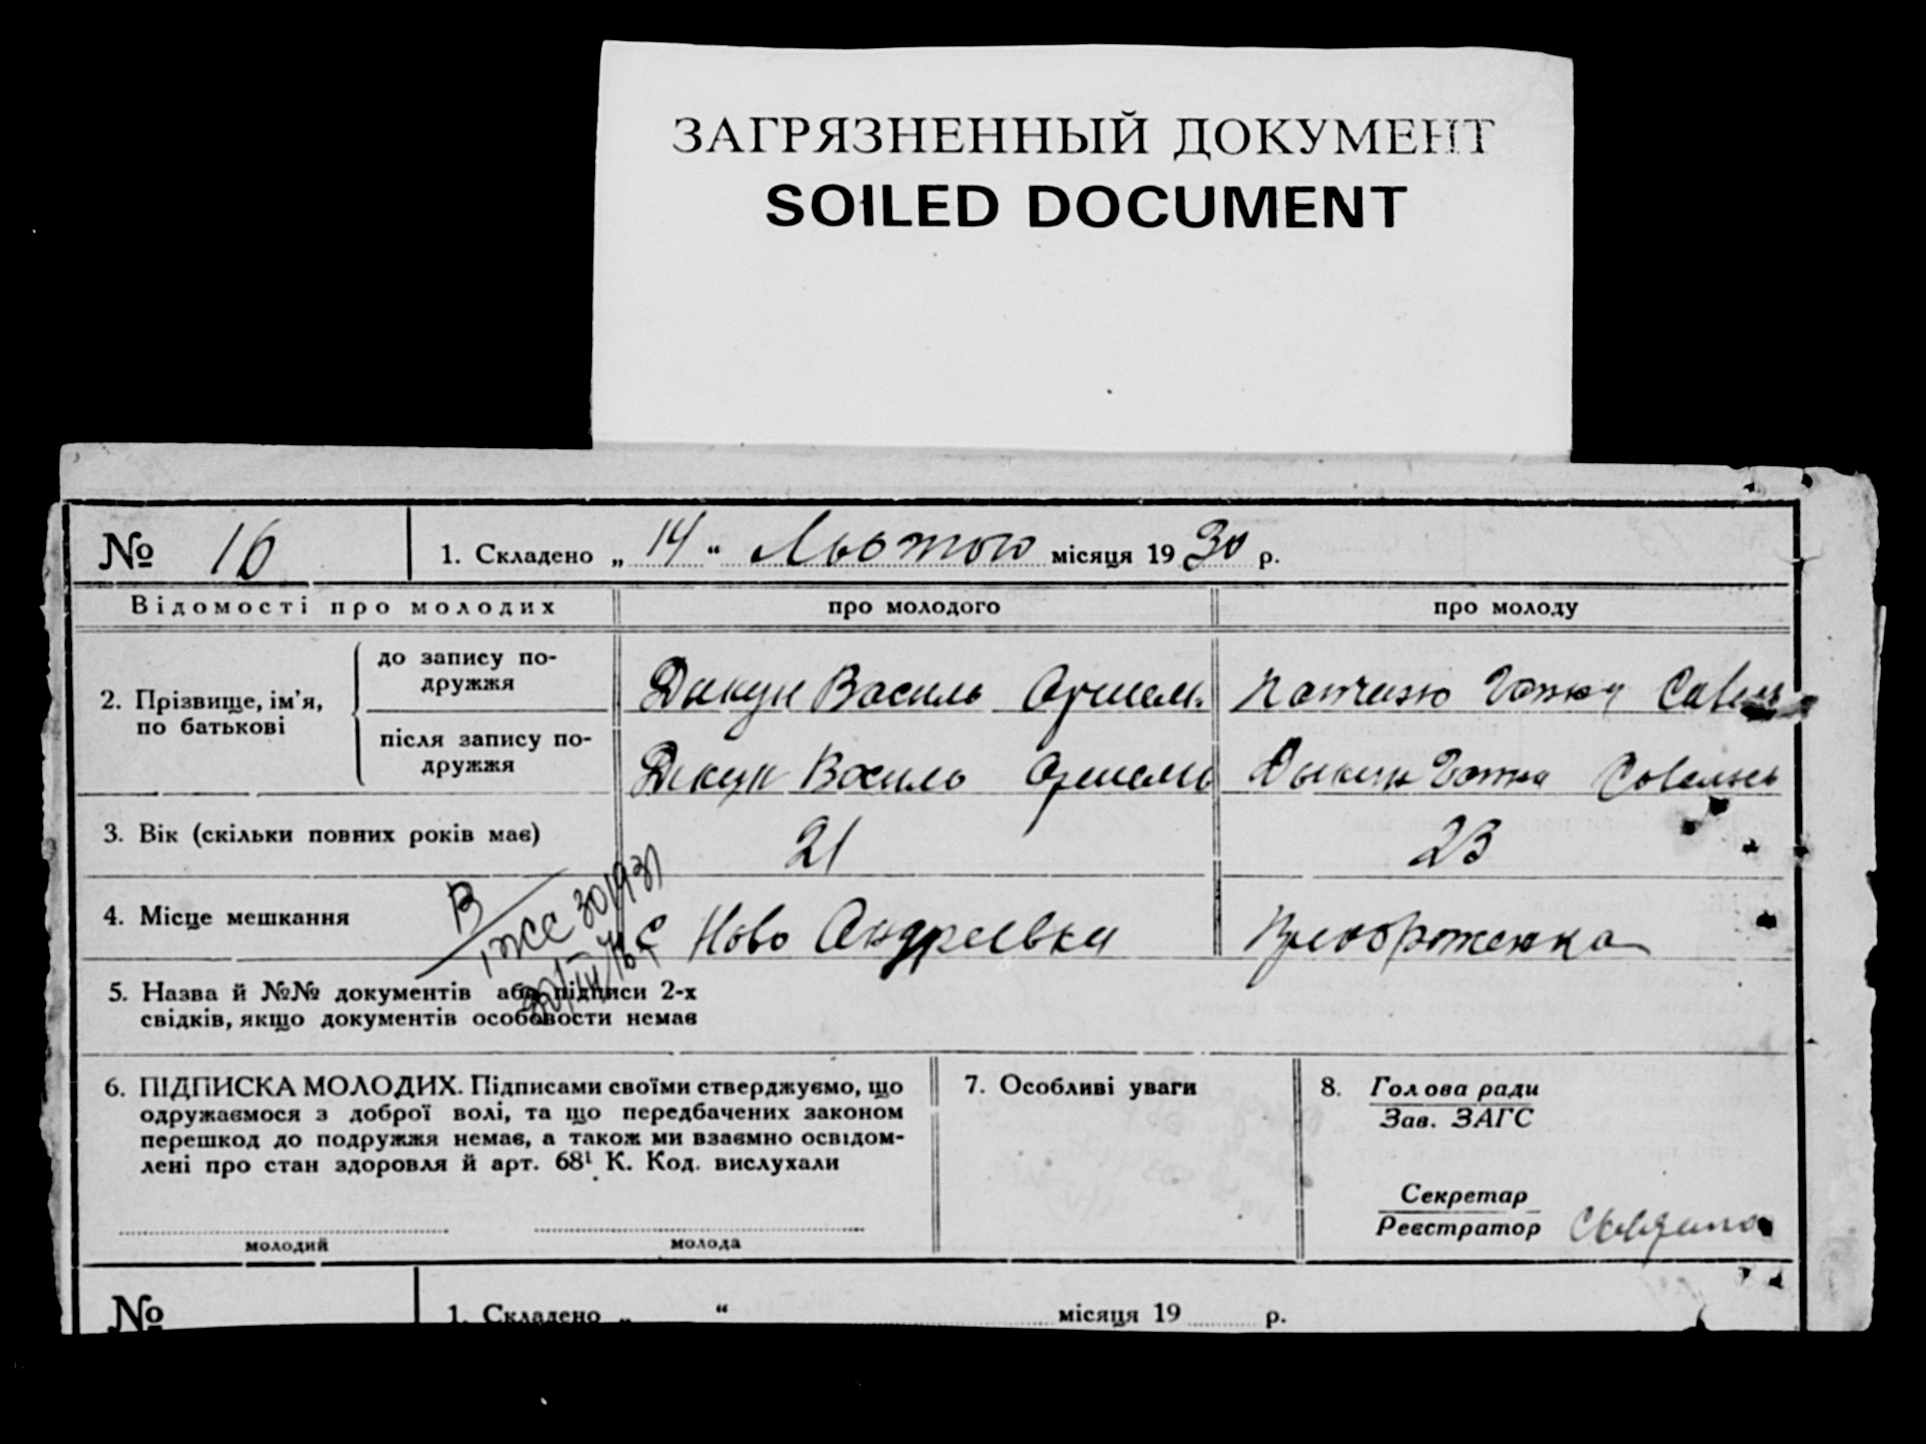 ЗАГРЯЗНЕННЫЙ ДОКУМЕНТ
SOILED DOCUMENT
№ 16
1. Складено „ 14 “ Лютого місяця 1930 р.
Відомості про молодих
про молодого
про молоду
2. Прізвище, ім'я, по батькові
до запису по-
дружжя
Дикун Василь
після запису по-
дружжя
Дикун Василь
3. Вік (скільки повних років має)
21
23
4. Місце мешкання
Ново Андреевка
5. Назва й №№ документів або підписи 2-х
свідків, якщо документів особовости немає
6. ПІДПИСКА МОЛОДИХ. Підписами своїми стверджуємо, що
одружаємося з доброї волі, та що передбачених законом
перешкод до подружжя немає, а також ми взаємно освідом-
лені про стан здоровля й арт. 68¹ К. Код. вислухали
молодий
молода
7. Особливі уваги
8. Голова ради
Зав. ЗАГС
Секретар
Реєстратор
№
1. Складено „ “ місяця 19 р.